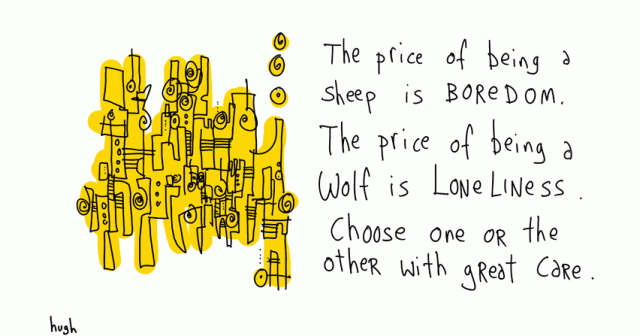 The price of being a
sheep is BOREDOM.
The price of being a
Wolf is LONELINESS.
Choose one or the
other with great care.
hugh